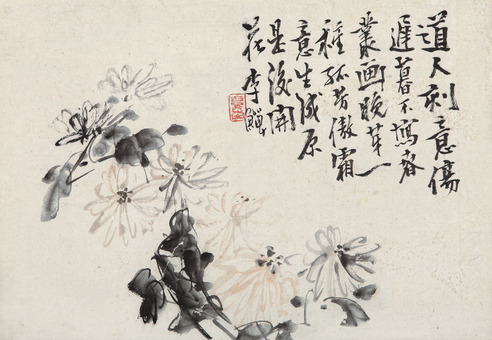 道人刻意傷
遲暮不寫春
叢画晚芽一
種孤芳傲霜
意生成原
是後開
花李鱓